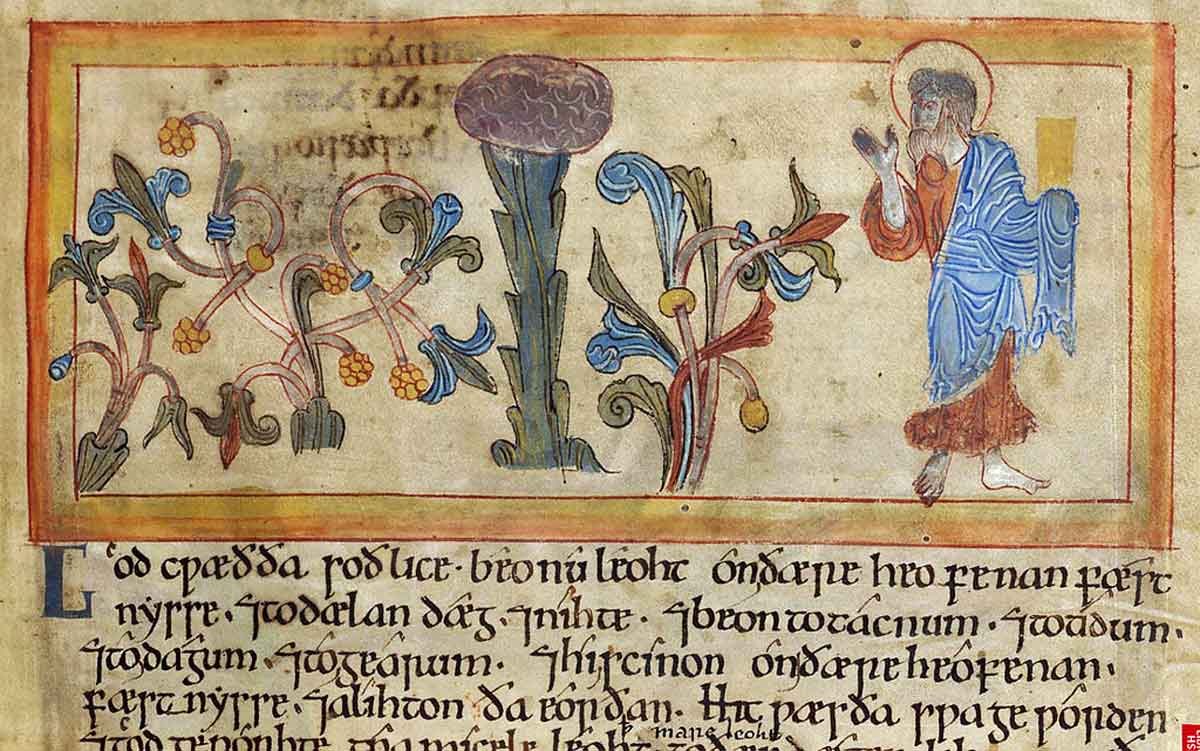 God cƿæð ða soðlice · beo nu leoht on ðære heofenan fæst
nysse · ⁊ todælan dæg · ⁊ nihte · ⁊ beon to tacnum · ⁊ to tidum ·
⁊ to dagum · ⁊ to gearum · ⁊ hi scinon on ðære heofenan ·
fæstnysse · ⁊ alihton ða eorðan · Hit ƿæs ða sƿa geƿorden
mare leoht
⁊ god geƿorhte tƿa micele leoht